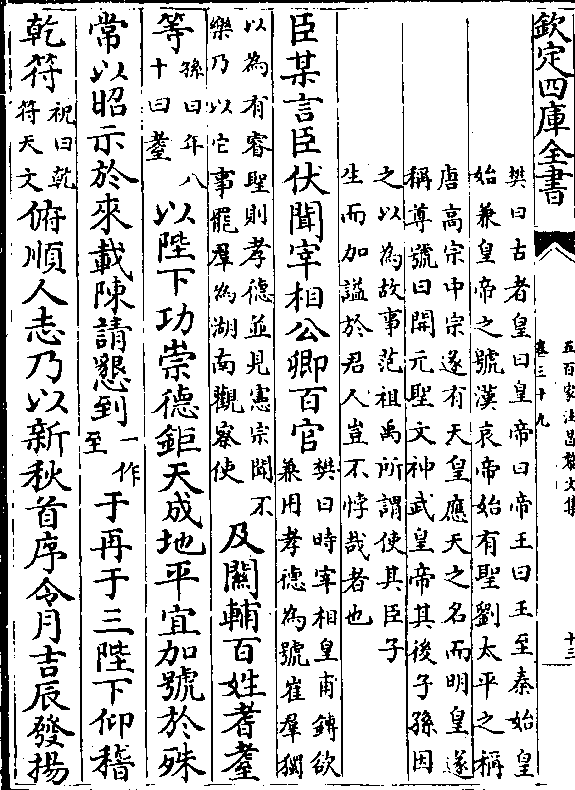 欽定四庫全書
五百家注昌黎文集
卷三十九
十三
樊曰古者皇曰皇帝曰帝王曰王至秦始皇
始兼皇帝之號漢哀帝始有聖劉太平之稱
唐高宗中宗遂有天皇應天之名而明皇遂
稱尊號曰開元聖文神武皇帝其後子孫因
之以為故事范祖禹所謂使其臣子
生而加諡於君人豈不悖哉者也
臣某言臣伏聞宰相公卿百官樊曰時宰相皇甫鎛欲兼用孝德為號崔羣獨
以為有睿聖則孝德並見憲宗聞不樂乃以它事罷羣為湖南觀察使及關輔百姓耆耋
等孫曰年八十曰耋以陛下功崇德鉅天成地平宜加號於殊
常以昭示於來載陳請懇到一作至于再于三陛下仰稽
乾符祝曰乾符天文俯順人志乃以新秋首序令月吉辰發揚